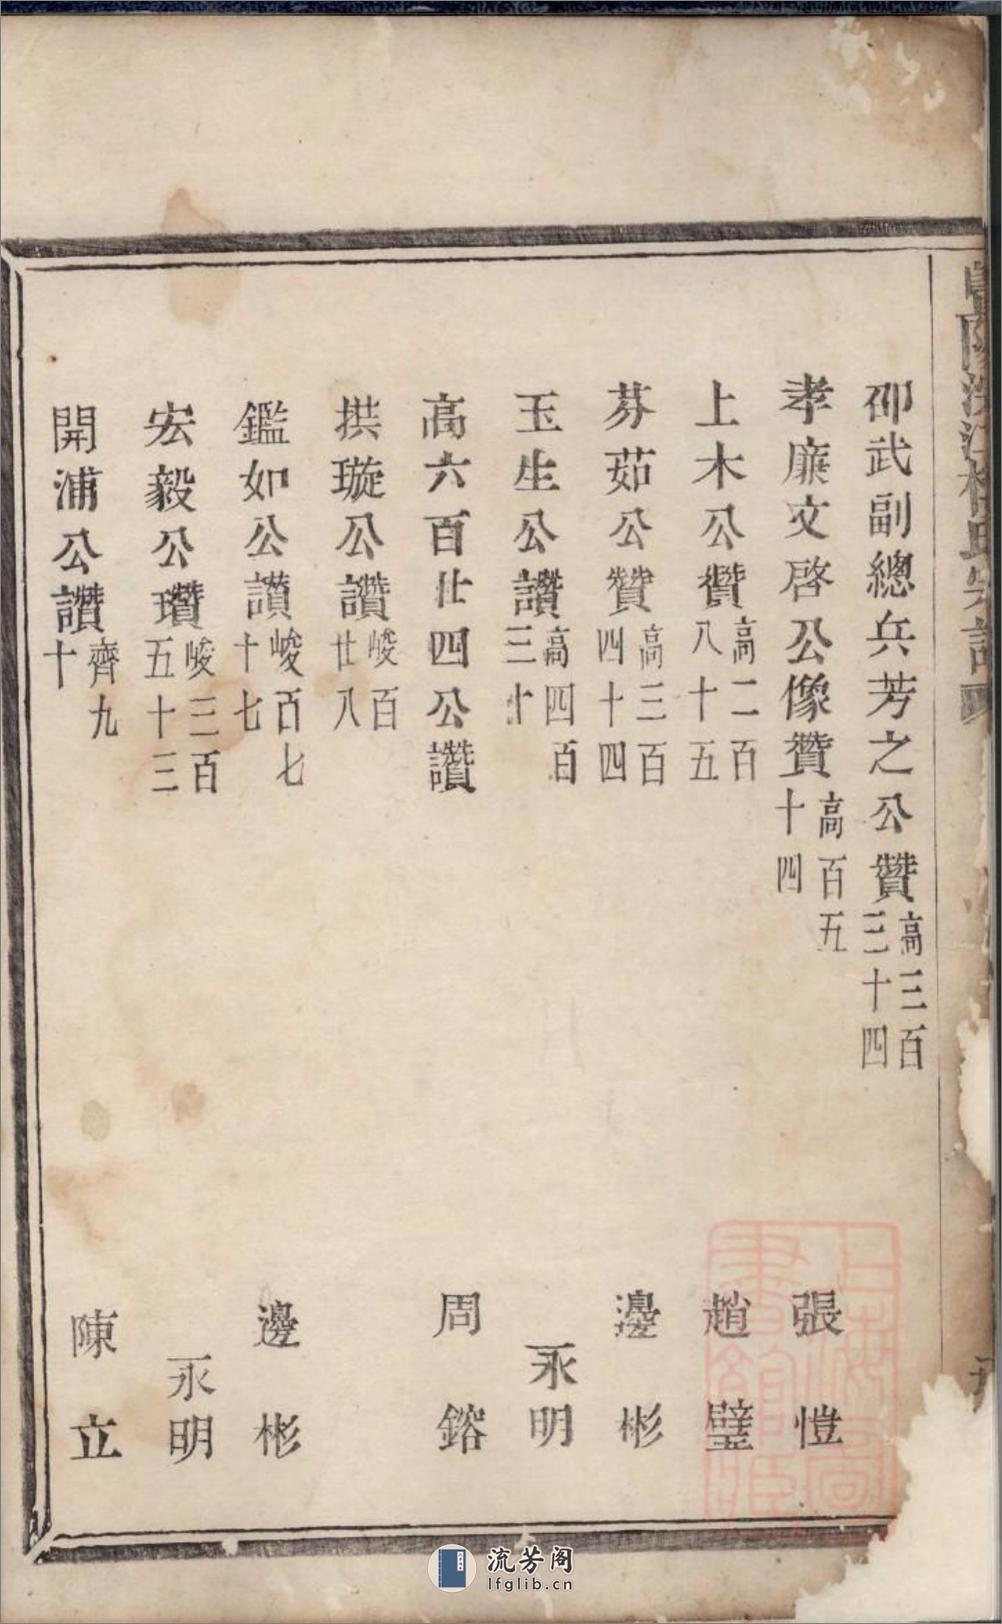 邵武副總兵芳之公贊高三百三十四
孝廉文啓公像贊高百五十四 張愷
上木公贊高二百八十五 趙璧
芬茹公贊高三百四十四 邊彬
玉生公讚高四百三十 永明
高六百廿四公讚 周鎔
拱璇公讚峻百廿八
鑑如公讚峻百七十七 邊彬
宏毅公瓚峻三百五十三 永明
開浦公讚齊九十 陳立
流芳阁
lfglib.cn